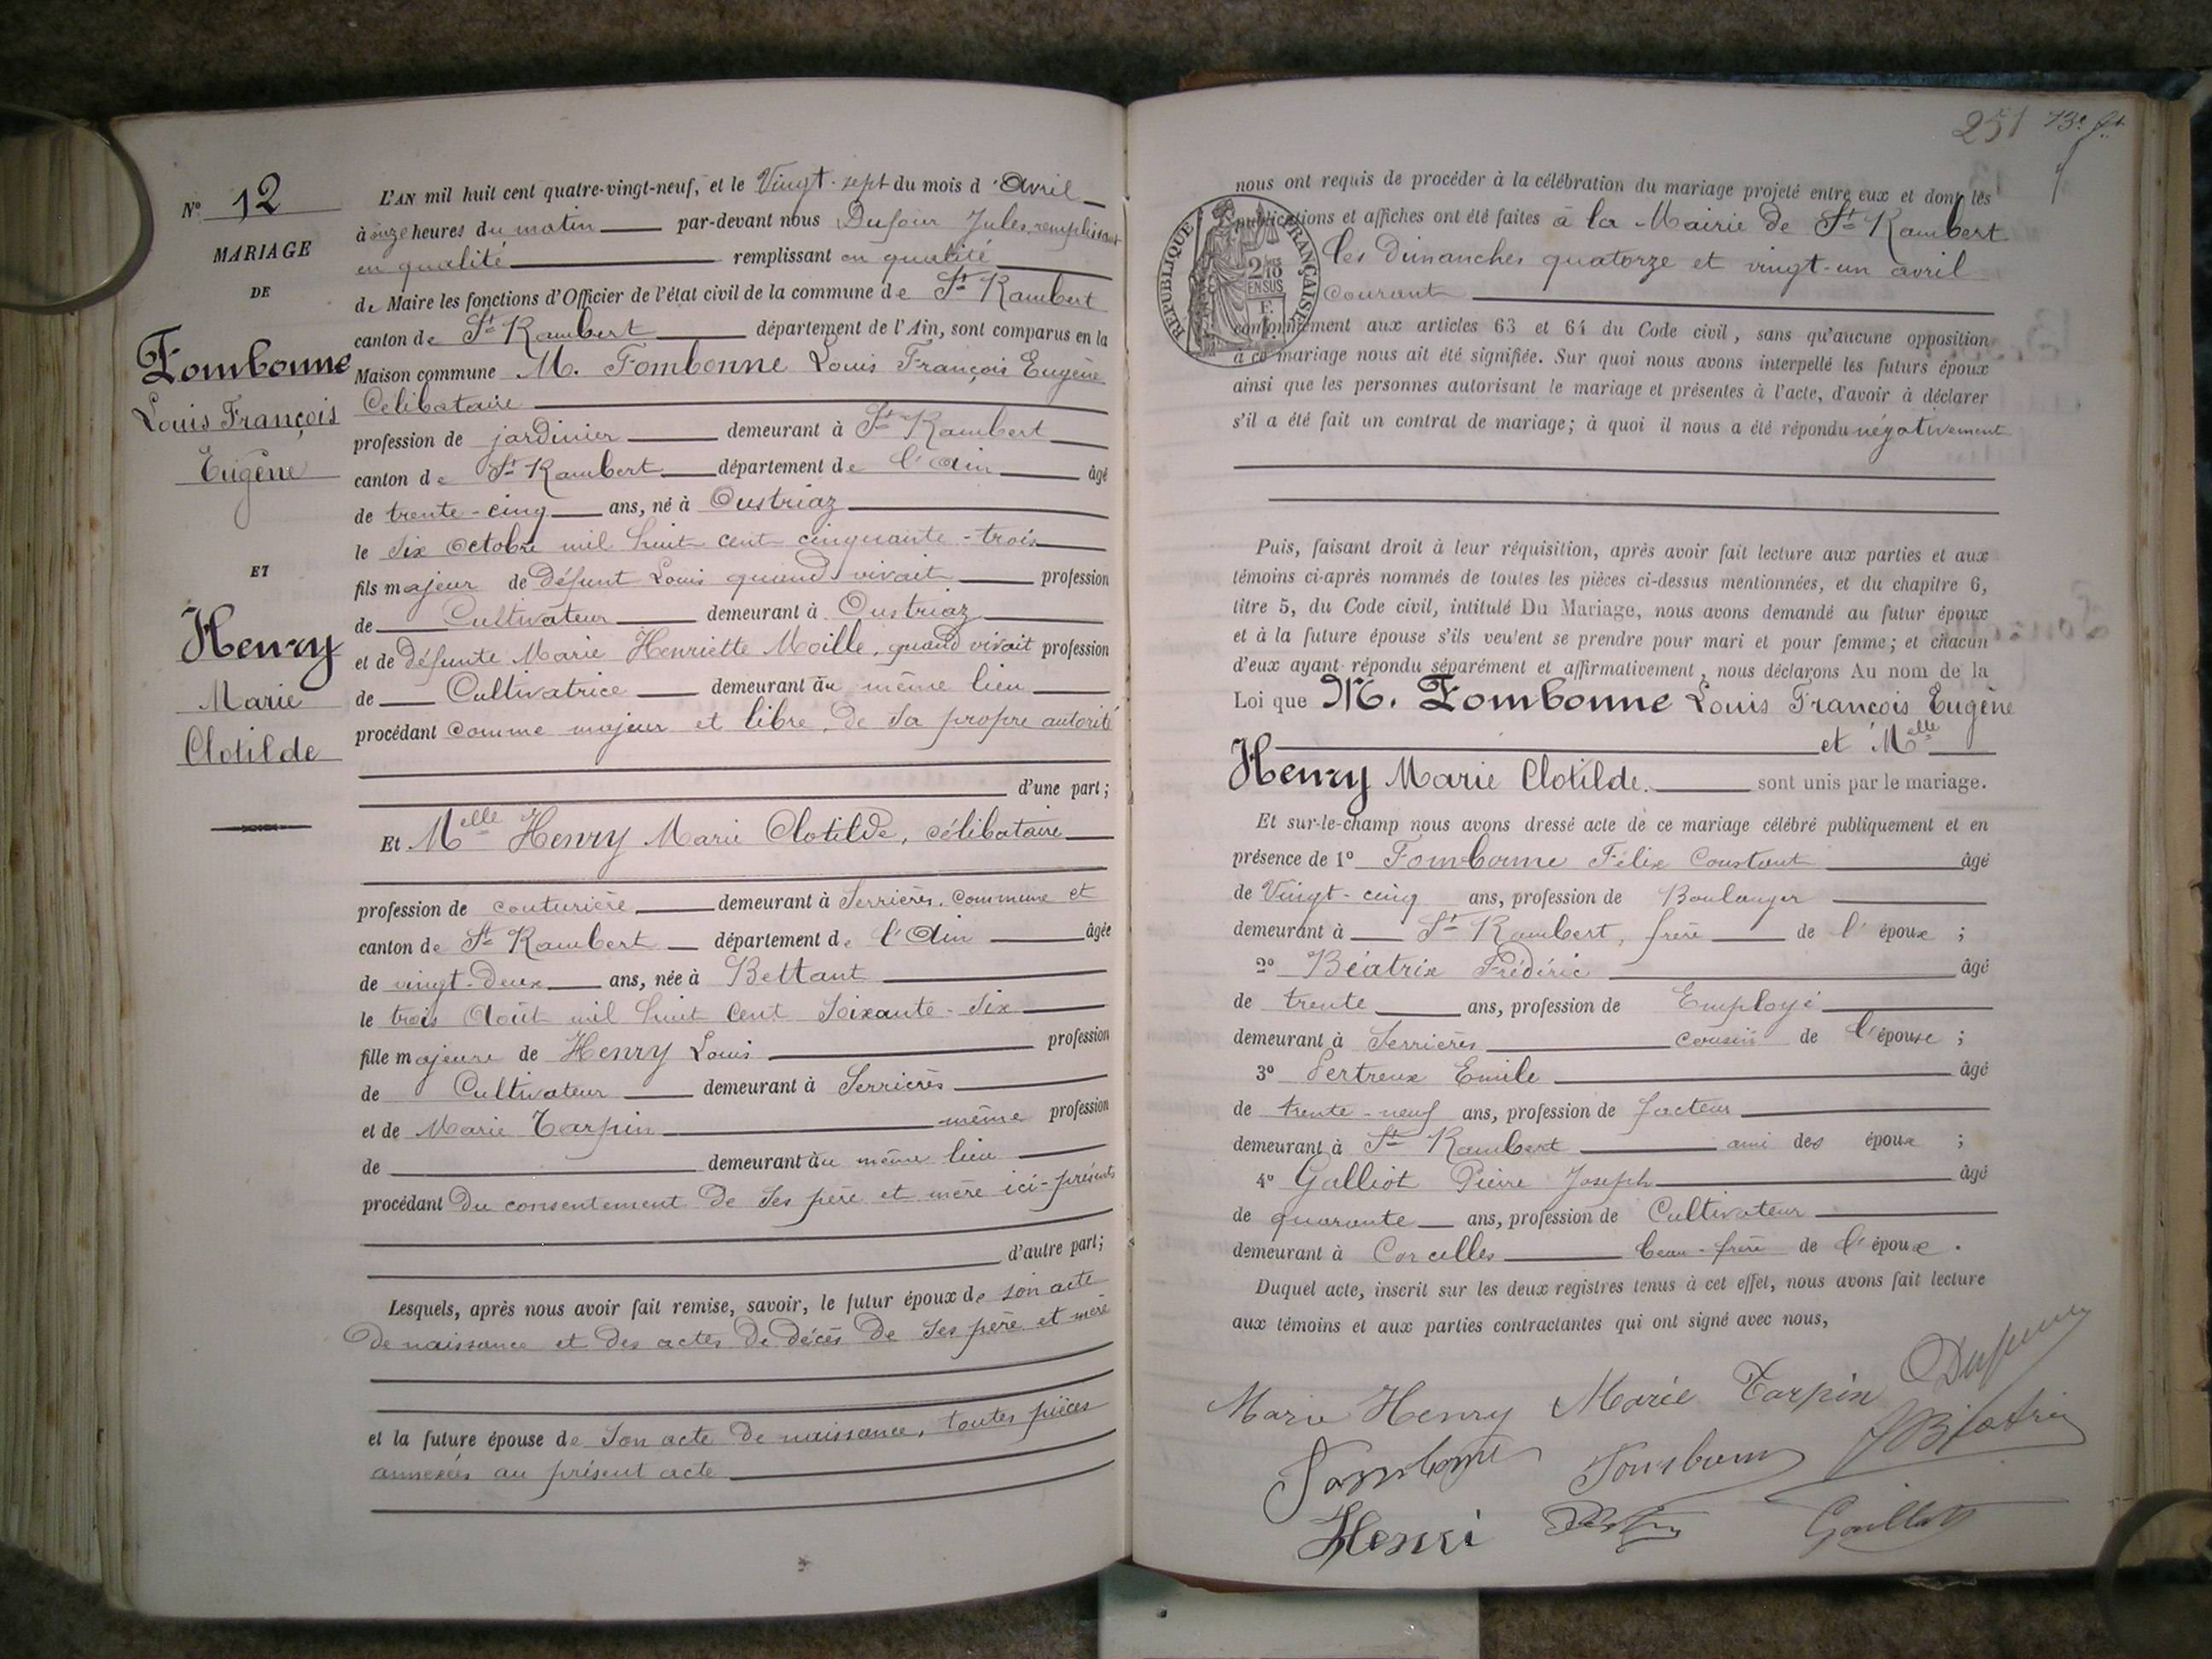 N° 12
MARIAGE
DE
Fombonne
Louis François
Eugène
ET
Henry
Marie
Clotilde
L'AN mil huit cent quatre-vingt-neuf, et le Vingt-sept du mois d'Avril
à onze heures du matin par-devant nous Dufour Jules, remplissant
en qualité remplissant en qualité
de Maire les fonctions d'Officier de l'état civil de la commune de St Rambert
canton de St Rambert département de l'Ain, sont comparus en la
Maison commune M. Fombonne Louis François Eugène
Célibataire
profession de jardinier demeurant à St Rambert
canton de St Rambert département de l'Ain âgé
de trente-cinq ans, né à Oustriaz
le six Octobre mil huit cent cinquante-trois
fils majeur de défunt Louis quand vivait profession
de Cultivateur demeurant à Oustriaz
et de défunte Marie Henriette Moille, quand vivait profession
de Cultivatrice demeurant au même lieu
procédant comme majeur et libre, de sa propre autorité
d'une part;
Et Melle Henry Marie Clotilde, célibataire
profession de couturière demeurant à Serrières, commune et
canton de St Rambert département de l'Ain âgée
de vingt-deux ans, née à Bettant
le trois Août mil huit cent soixante-six
fille majeure de Henry Louis profession
de Cultivateur demeurant à Serrières
et de Marie Tarpin même profession
de demeurant au même lieu
procédant du consentement de ses père et mère ici-présents
d'autre part;
Lesquels, après nous avoir fait remise, savoir, le futur époux de son acte
de naissance et des actes de décès de ses père et mère
et la future épouse de son acte de naissance, toutes pièces
annexées au présent acte
251 13e ft
nous ont requis de procéder à la célébration du mariage projeté entre eux et dont les
publications et affiches ont été faites à la Mairie de St Rambert
les dimanches quatorze et vingt-un avril
courant
RÉPUBLIQUE FRANÇAISE
2/10
EN SUS
conformément aux articles 63 et 64 du Code civil, sans qu'aucune opposition
à ce mariage nous ait été signifiée. Sur quoi nous avons interpellé les futurs époux
ainsi que les personnes autorisant le mariage et présentes à l'acte, d'avoir à déclarer
s'il a été fait un contrat de mariage; à quoi il nous a été répondu négativement
Puis, faisant droit à leur réquisition, après avoir fait lecture aux parties et aux
témoins ci-après nommés de toutes les pièces ci-dessus mentionnées, et du chapitre 6,
titre 5, du Code civil, intitulé Du Mariage, nous avons demandé au futur époux
et à la future épouse s'ils veulent se prendre pour mari et pour femme; et chacun
d'eux ayant répondu séparément et affirmativement, nous déclarons Au nom de la
Loi que M. Fombonne Louis François Eugène
et Melle
Henry Marie Clotilde. sont unis par le mariage.
Et sur-le-champ nous avons dressé acte de ce mariage célébré publiquement et en
présence de 1° Fombonne Félix Constant âgé
de Vingt-cinq ans, profession de Boulanger
demeurant à St Rambert, frère de l'époux ;
2° Béatrix Frédéric âgé
de trente ans, profession de Employé
demeurant à Serrières cousin de l'épouse ;
3° Pertreux Emile âgé
de trente-neuf ans, profession de facteur
demeurant à St Rambert ami des époux ;
4° Galliot Pierre Joseph âgé
de quarante ans, profession de Cultivateur
demeurant à Corcelles beau-frère de l'époux.
Duquel acte, inscrit sur les deux registres tenus à cet effet, nous avons fait lecture
aux témoins et aux parties contractantes qui ont signé avec nous,
Marie Henry Marie Tarpin Dufour
Fombonne Fombonne Béatrix
Henri Galliot